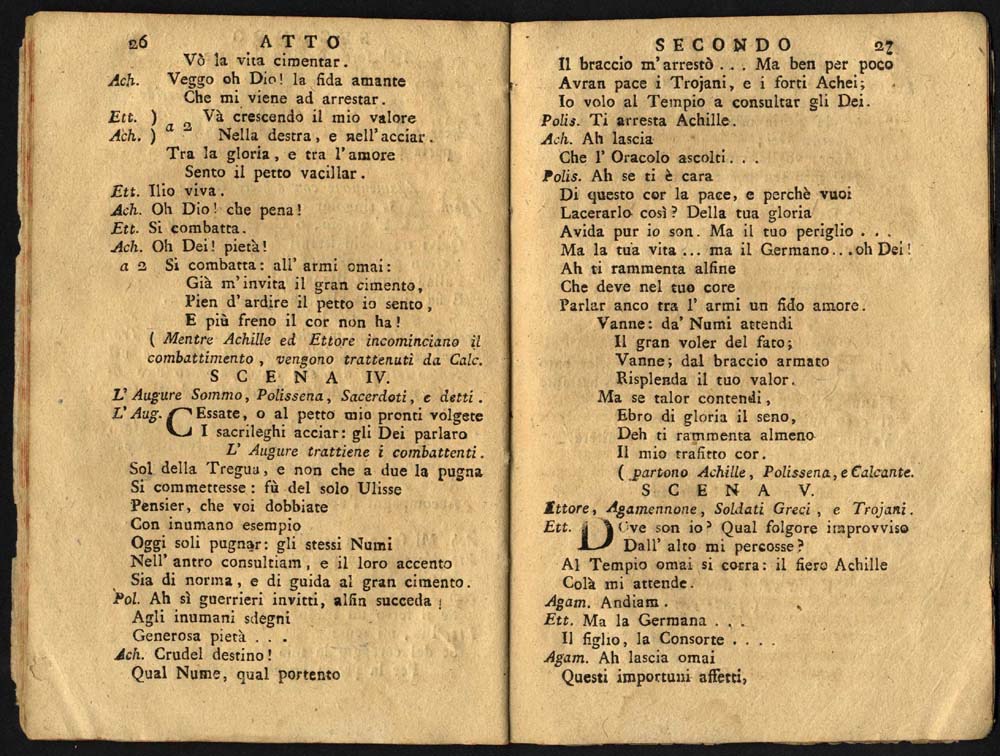 26 ATTO
Vò la vita cimentar.
Ach. Veggo oh Dio! la fida amante
Che mi viene ad arrestar.
Ett. ) a 2 Và crescendo il mio valore
Ach. ) Nella destra, e nell'acciar.
Tra la gloria, e tra l'amore
Sento il petto vacillar.
Ett. Ilio viva.
Ach. Oh Dio! che pena!
Ett. Si combatta.
Ach. Oh Dei! pietà!
a 2 Si combatta: all' armi omai:
Già m'invita il gran cimento,
Pien d'ardire il petto io sento,
E più freno il cor non ha!
( Mentre Achille ed Ettore incominciano il
combattimento, vengono trattenuti da Calc.
SCENA IV.
L'Augure Sommo, Polissena, Sacerdoti, e detti.
L'Aug. CEssate, o al petto mio pronti volgete
I sacrileghi acciar: gli Dei parlaro
L' Augure trattiene i combattenti.
Sol della Tregua, e non che a due la pugna
Si commettesse: fù del solo Ulisse
Pensier, che voi dobbiate
Con inumano esempio
Oggi soli pugnar: gli stessi Numi
Nell' antro consultiam, e il loro accento
Sia di norma, e di guida al gran cimento.
Pol. Ah sì guerrieri invitti, alfin succeda
Agli inumani sdegni
Generosa pietà . . .
Ach. Crudel destino!
Qual Nume, qual portento
SECONDO 27
Il braccio m'arrestò . . . Ma ben per poco
Avran pace i Trojani, e i forti Achei;
Io volo al Tempio a consultar gli Dei.
Polis. Ti arresta Achille.
Ach. Ah lascia
Che l' Oracolo ascolti. . .
Polis. Ah se ti è cara
Di questo cor la pace, e perchè vuoi
Lacerarlo così? Della tua gloria
Avida pur io son. Ma il tuo periglio . . .
Ma la tua vita ... ma il Germano...oh Dei!
Ah ti rammenta alfine
Che deve nel tuo core
Parlar anco tra l' armi un fido amore.
Vanne: da' Numi attendi
Il gran voler del fato;
Vanne; dal braccio armato
Risplenda il tuo valor.
Ma se talor contendi,
Ebro di gloria il seno,
Deh ti rammenta almeno
Il mio trafitto cor.
( partono Achille, Polissena, e Calcante.
SCENA V.
Ettore, Agamennone, Soldati Greci, e Trojani.
Ett. DOve son io? Qual folgore improvviso
Dall' alto mi percosse?
Al Tempio omai si corra: il fiero Achille
Colà mi attende.
Agam. Andiam.
Ett. Ma la Germana . . .
Il figlio, la Consorte . . . .
Agam. Ah lascia omai
Questi importuni affetti,